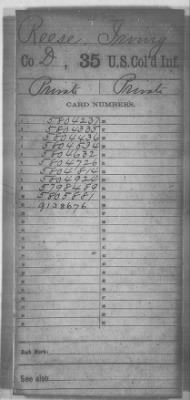 Reese, Irving
Co D, 35 U.S. Col'd Inf.
Private Private
CARD NUMBERS.
1 5804237
2 5804335
3 5804436
4 5804534
5 5804632
6 5804726
7 5804814
8 5804924
9 5798489
10 5805881
11 9128676
Book Mark:
See also